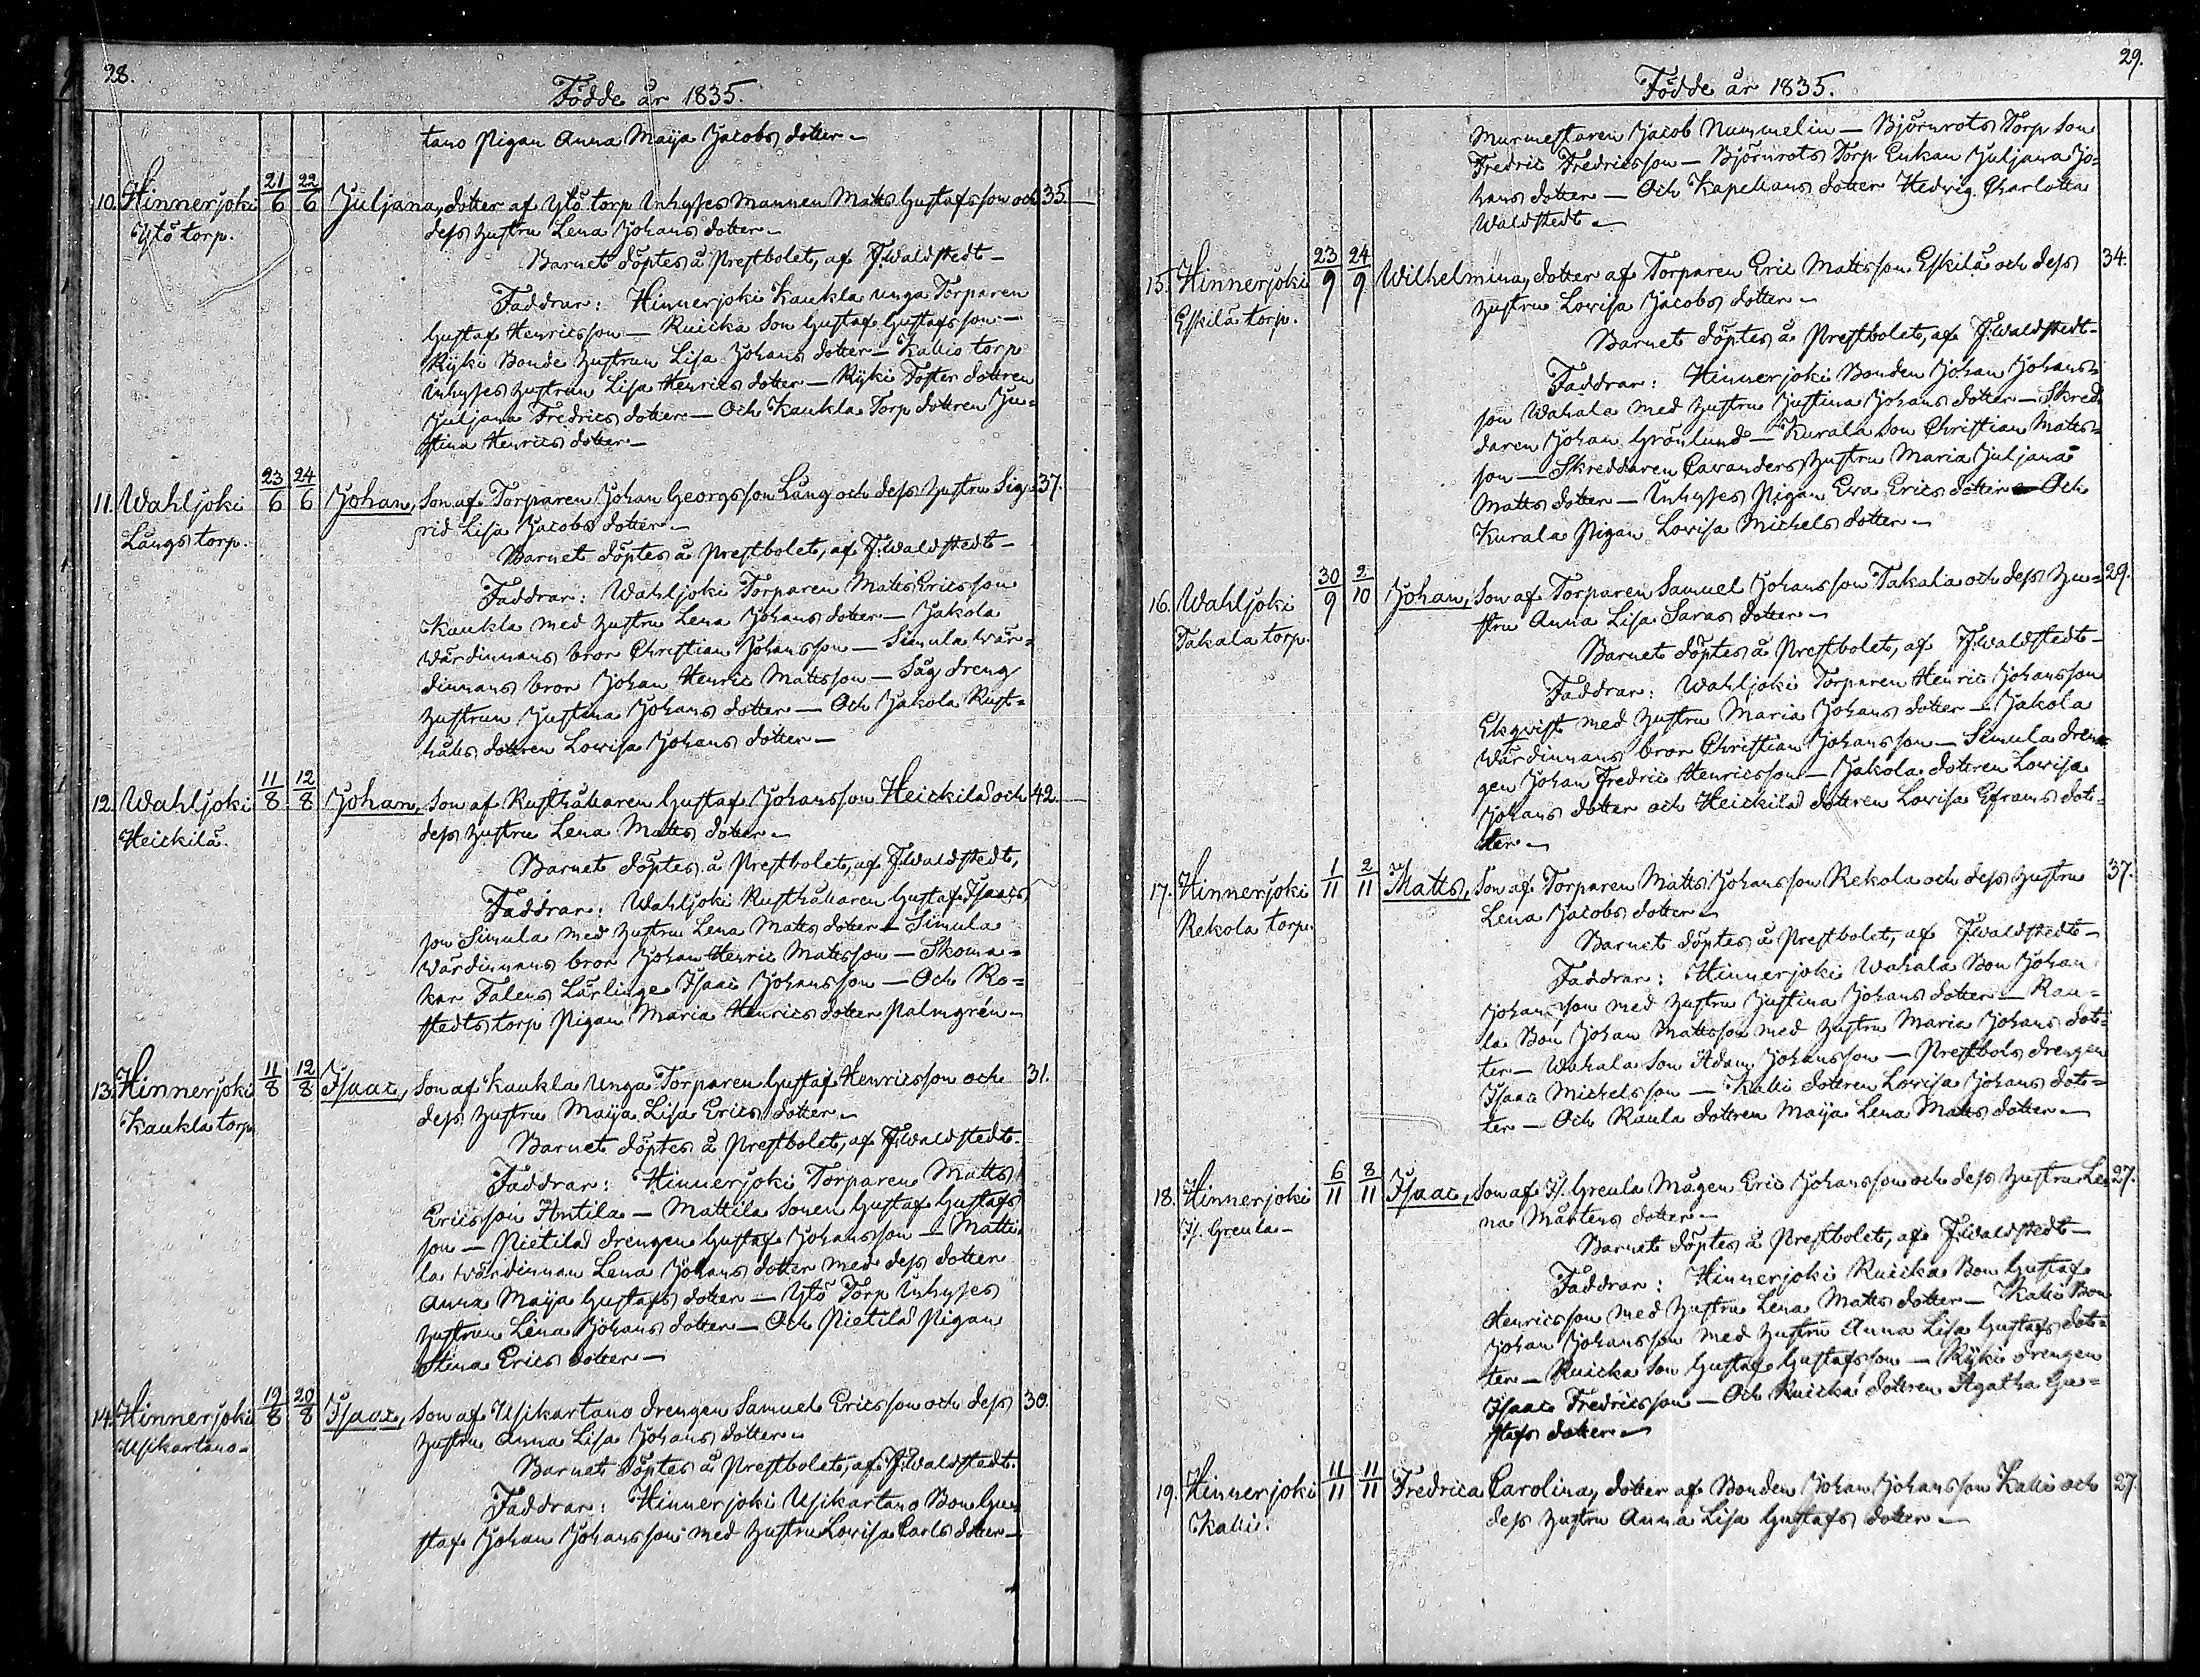 28.
Födde år 1835.
tano Pigan Anna Maija Jacobs dotter –
10. Hinnerjoki 21/6 22/6 Juljana, dotter af Ytö torp Inhyses Mannen Matts Gustafsson och 35.
Ytö torp. dess hustru Lena Johans dotter –
Barnet döptes å Prestbolet, af F. Waldstedt –
Faddrar: Hinnerjoki Kaukla unga Torparen
Gustaf Henricsson – Ruicka Son Gustaf Gustafsson –
Rÿki Bonde hustrun Lisa Johans dotter – Kallio torp
Inhyses hustrun Lisa Henrics dotter – Rÿki Foster dottren
Juljana Fredrics dotter – Och Kaukla Torp dottren Ju=
stina Henrics dotter –
11. Wahljoki 23/6 24/6 Johan, Son af Torparen Johan Georgsson Lång och dess hustru Sig= 37.
Längs torp. rid Lisa Jacobs dotter –
Barnet döptes å Prestbolet, af F. Waldstedt –
Faddrar: Wahljoki Torparen Matts Ericsson
Kaukla med hustru Lena Johans dotter – Jakola
Wärdinnans bror Christian Johansson – Simula wär=
dinnans bror Johan Henric Mattsson – Såg dreng
hustrun Justina Johans dotter – Och Jakola Rust=
hålls dottren Lovisa Johans dotter –
12. Wahljoki 11/8 12/8 Johan, Son af Rusthållaren Gustaf Johansson Heickilä och 42.
Heickilä. dess hustru Lena Matts dotter –
Barnet döptes å Prestbolet, af F. Waldstedt,
Faddrar: Wahljoki Rusthållaren Gustaf Isaacs
son Simula med hustru Lena Matts dotter – Simula
Wärdinnans bror Johan Henric Mattsson – Skoma=
kar Falens Lärlinge Isaac Johansson – Och Ro=
stedts torp Pigan Maria Henrics dotter Palmgrén –
13. Hinnerjoki 11/8 12/8 Isaac, Son af Kaukla Unga Torparen Gustaf Henricsson och 31.
Kaukla torp dess hustru Maija Lisa Erics dotter –
Barnet döptes å Prestbolet, af F. Waldstedt.
Faddrar: Hinnerjoki Torparen Matts
Ericsson Antila – Mattila Sonen Gustaf Gustafs
son – Pietilä drengen Gustaf Johansson – Matti
la Wärdinnan Lena Johans dotter med dess dotter
Anna Maija Gustafs dotter – Ytö Torp Inhyses
hustrun Lena Johans dotter – Och Pietilä Pigan
Stina Erics dotter –
14. Hinnerjoki 19/8 20/8 Isaac, Son af Usikartano drengen Samuel Ericsson och dess 30.
Usikartano – hustru Anna Lisa Johans dotter –
Barnet döptes å Prestbolet, af F. Waldstedt.
Faddrar: Hinnerjoki Usikartano Bon Gu
staf Johan Johansson med hustru Lovisa Carls dotter –
29.
Födde år 1835.
Murmestaren Jacob Nummelin – Björnrots Torp Son
Fredric Fredricsson – Björnrots Torp Enkan Juljana Jo=
hans dotter – Och Kapellans dotter Hedvig Charlotta
Waldstedt –
15. Hinnerjoki 23/9 24/9 Wilhelmina, dotter af Torparen Eric Mattsson Eskilä och dess 34.
Eskilä torp. hustru Lovisa Jacobs dotter –
Barnet döptes å Prestbolet, af F. Waldstedt –
Faddrar: Hinnerjoki Bonden Johan Johans=
son Wahala med hustru Justina Johans dotter – Skred
daren Johan Grönlund – Kurala Son Christian Matts=
son – Skreddaren Cavanders hustru Maria Juljana
Matts dotter – Inhyses Pigan Eva Erics dotter – Och
Kurala Pigan Lovisa Michels dotter –
16. Wahljoki 30/9 2/10 Johan, Son af Torparen Samuel Johansson Takala och dess hu= 29.
Takala torp. stru Anna Lisa Saras dotter –
Barnet döptes å Prestbolet, af F. Waldstedt –
Faddrar: Wahljoki Torparen Henric Johansson
Ekqvist med hustru Maria Johans dotter – Jakola
Wärdinnans bror Christian Johansson – Simula dren
gen Johan Fredric Henricsson – Jakola dottren Lovisa
Johans dotter och Heickilä dottren Lovisa Eframs dot=
ter –
17. Hinnerjoki 1/11 2/11 Matts, Son af Torparen Matts Johansson Rekola och dess hustru 37.
Rekola torp. Lena Jacobs dotter –
Barnet döptes å Prestbolet, af F. Waldstedt –
Faddrar: Hinnerjoki Wahala Bon Johan
Johansson med hustru Justina Johans dotter – Rau=
la Bon Johan Mattsson med hustru Maria Johans dot=
ter – Wahala Son Adam Johansson – Prestbols drengen
Isaac Michelsson – Kalli dottren Lovisa Johans dot=
ter – Och Raula dottren Maija Lena Matts dotter –
18. Hinnerjoki 6/11 8/11 Isaac, Son af Is. Greula Mågen Eric Johansson och dess hustru Le 27.
Is. Greula – na Mårtens dotter –
Barnet döptes å Prestbolet, af F. Waldstedt –
Faddrar: Hinnerjoki Ruicka Bon Gustaf
Henricsson med hustru Lena Matts dotter – Kalli Bon
Johan Johansson med hustru Anna Lisa Gustafs dot=
ter – Ruicka Son Gustaf Gustafsson – Rÿki drengen
Isaac Fredricsson – Och Ruicka dottren Agatha Gu=
stafs dotter –
19. Hinnerjoki 11/11 11/11 Fredrica Carolina, dotter af Bonden Johan Johansson Kalli och 27.
Kalli. dess hustru Anna Lisa Gustafs dotter –